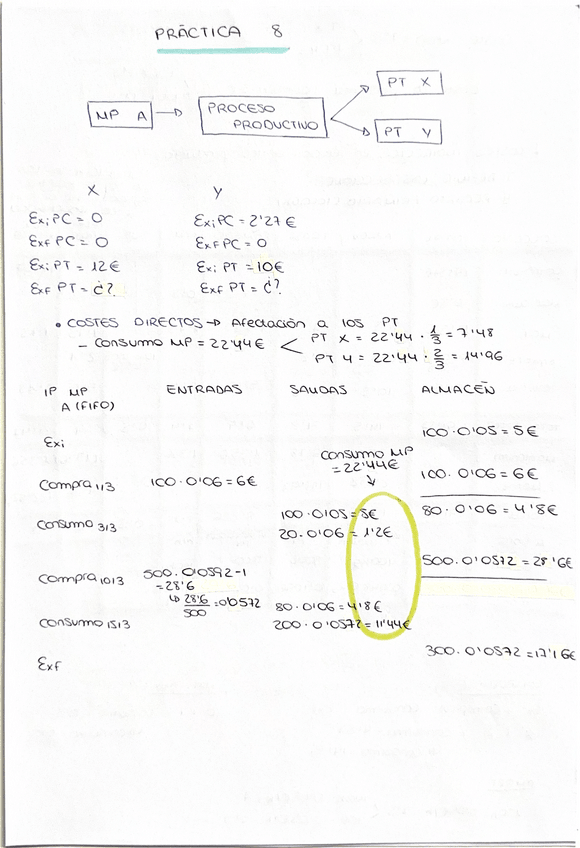 PRÁCTICA 8
PT X
MP A
PROCESO
PRODUCTIVO
PT Y
X Y
Exi PC = 0 Exi PC = 2'27 €
Exf PC = 0 Exf PC = 0
Exi PT = 12 € Exi PT = 10 €
Exf PT = ¿? Exf PT = ¿?
• COSTES DIRECTOS → Afectación a los PT
- Consumo MP = 22'44 € < PT X = 22'44 · 1/3 = 7'48
PT Y = 22'44 · 2/3 = 14'96
IP MP ENTRADAS SALIDAS ALMACÉN
A (FIFO)
Exi 100 · 0'05 = 5 €
Consumo MP
= 22'44 €
↓
Compra 1/3 100 · 0'06 = 6 € 100 · 0'06 = 6 €
Consumo 3/3 100 · 0'05 = 5 € 80 · 0'06 = 4'8 €
20 · 0'06 = 1'2 €
500 · 0'0572 = 28'6 €
Compra 10/3 500 · 0'0592 - 1
= 28'6
↳ 28'6/500 = 0'0572
80 · 0'06 = 4'8 €
Consumo 15/3 200 · 0'0572 = 11'44 €
300 · 0'0572 = 17'16 €
Exf